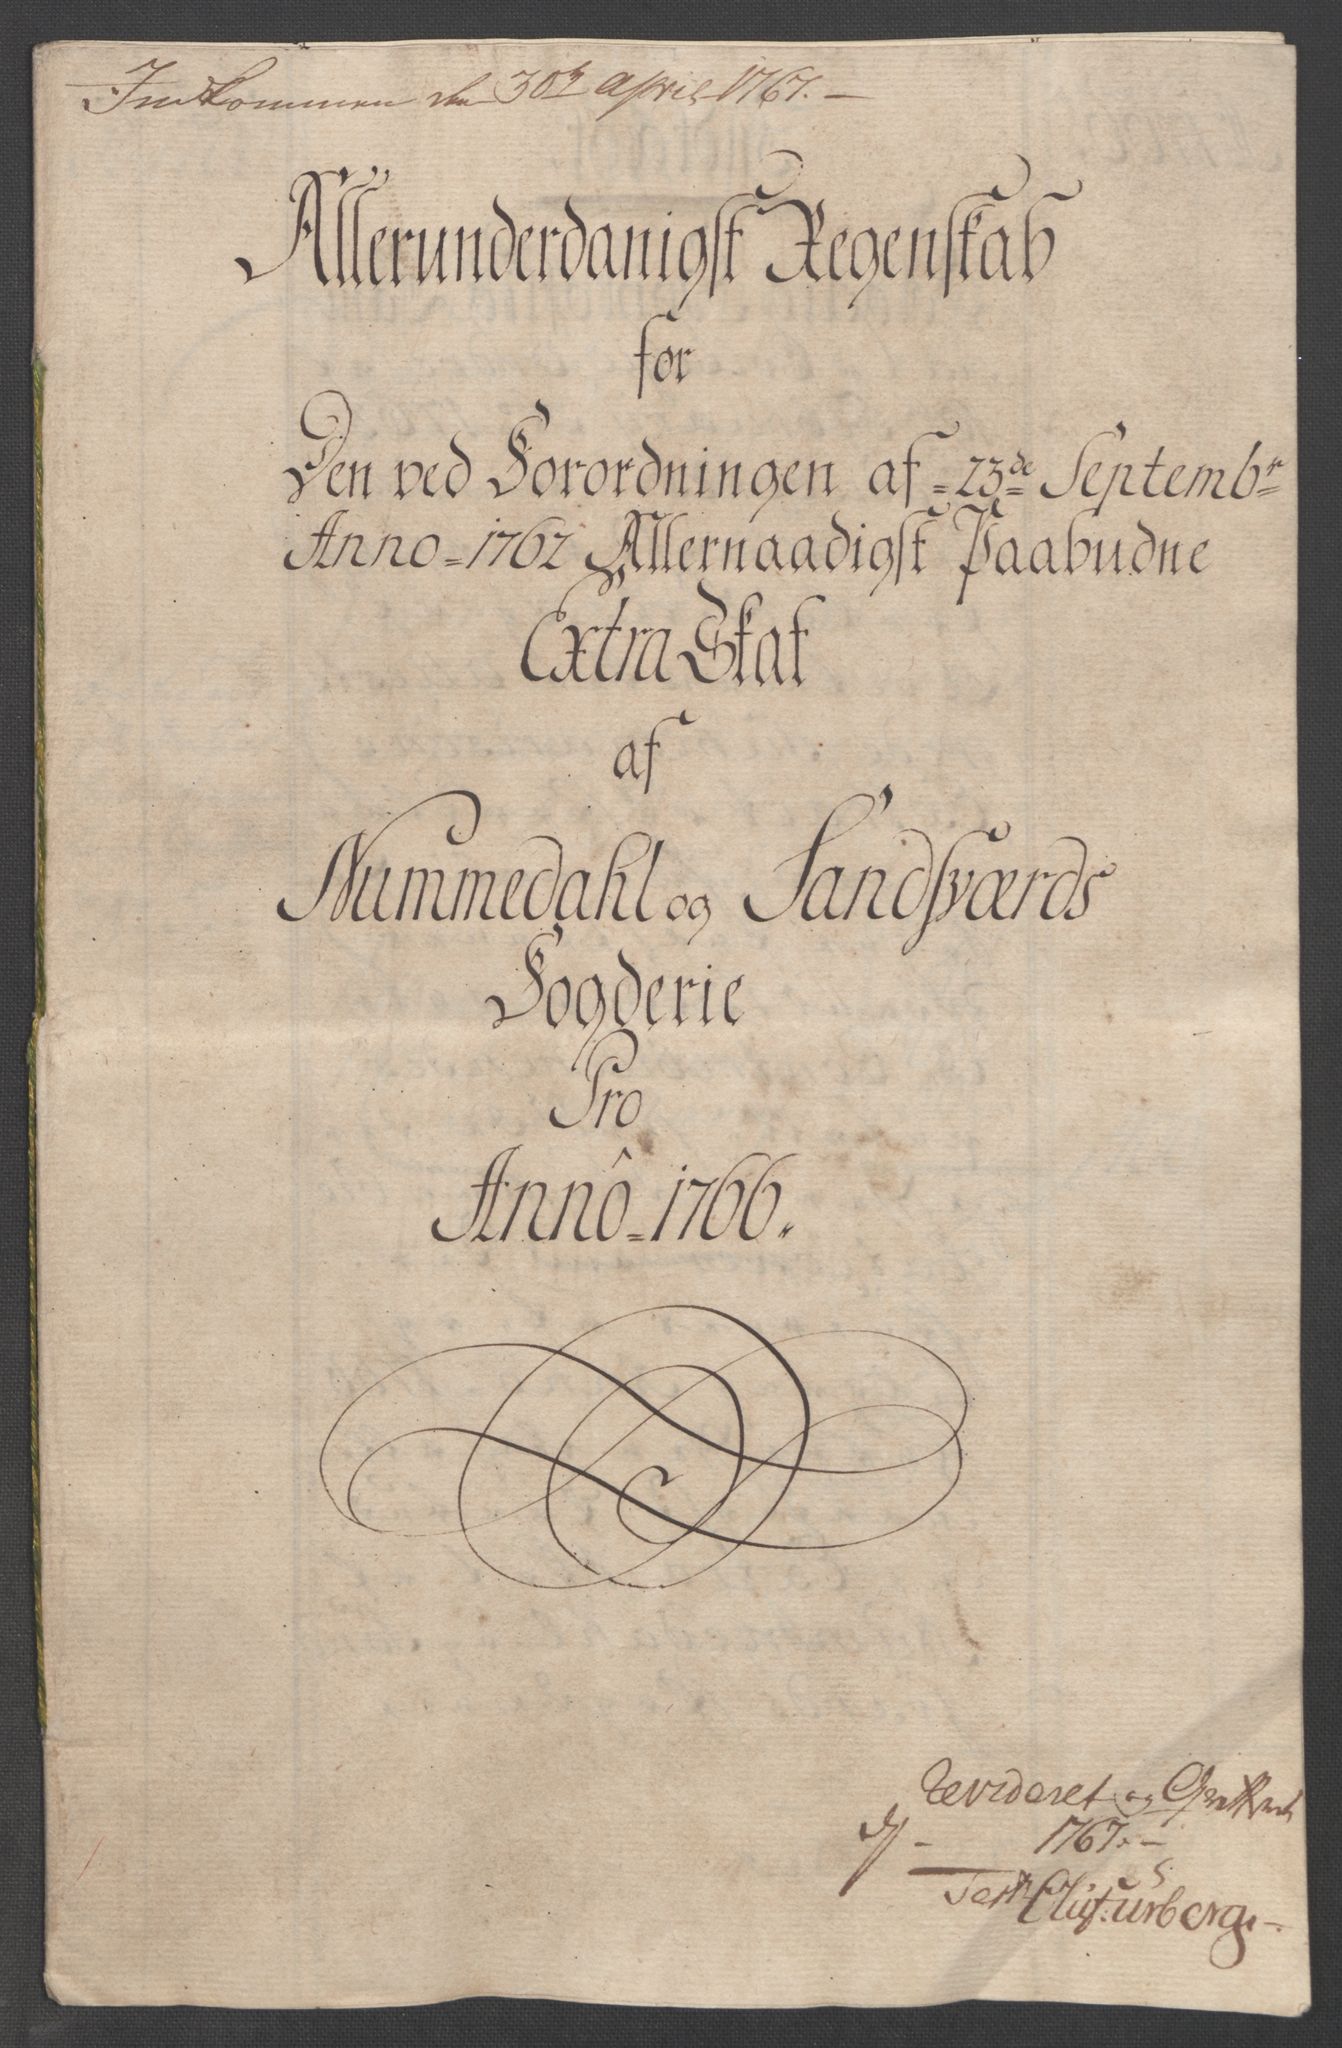 Indkommen den 30te April 1767.
Allerunderdanigst Regenskab
for
Den ved Forordningen af = 23de Septembr
Anno = 1762 Allernaadigst Paabudne
Extra Skat
af
Nummedahl og Sandsværds
Fogderie
Pro
Annô = 1766.
Revideret og
1767.